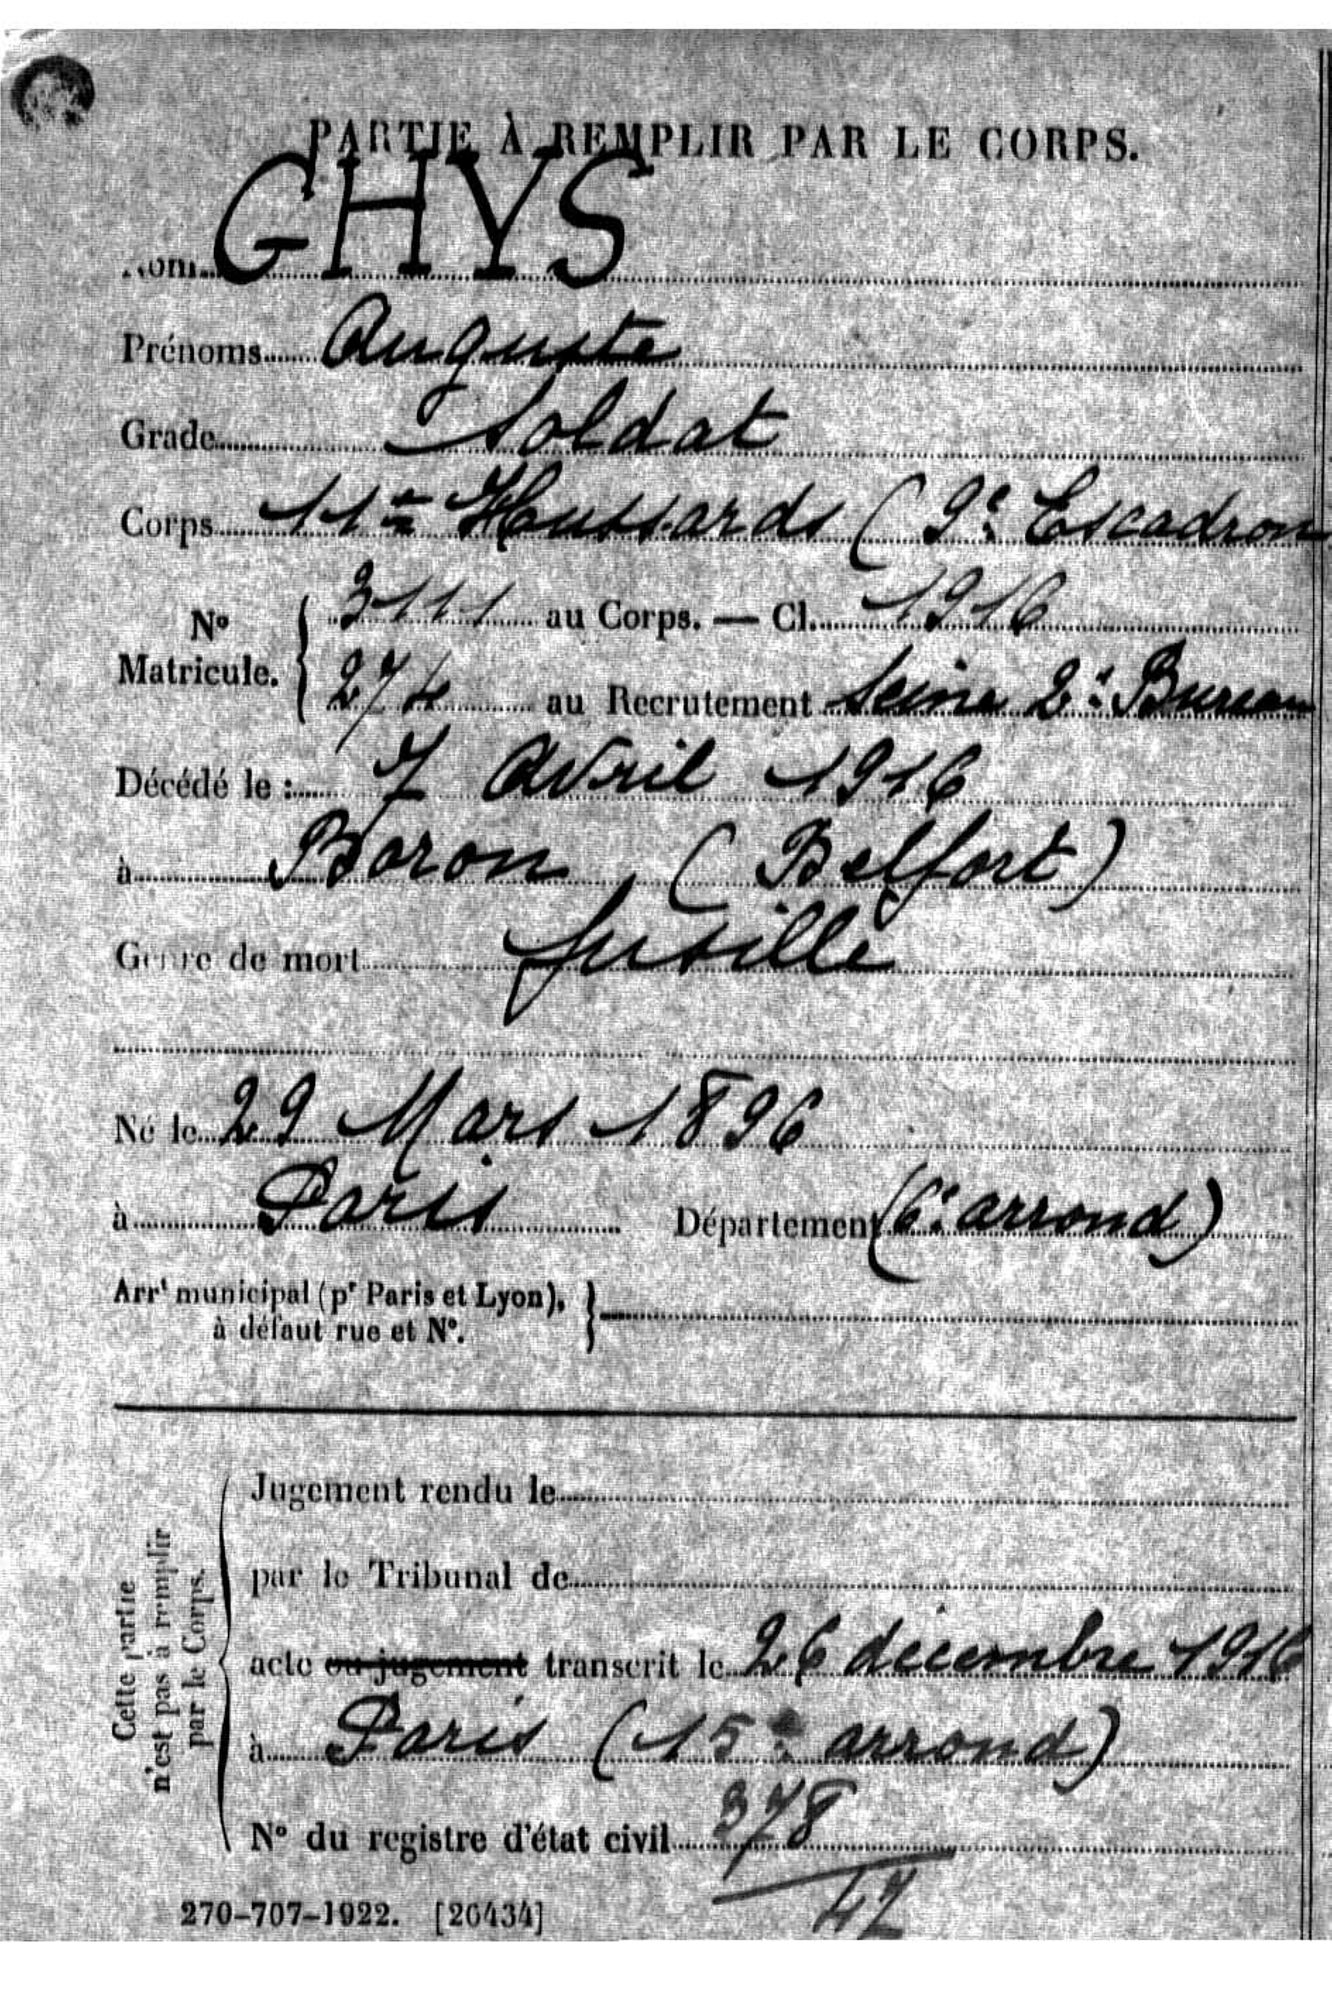 PARTIE À REMPLIR PAR LE CORPS.
Nom GHYS
Prénoms Auguste
Grade Soldat
Corps 11e Hussards (9e Escadron
No Matricule. { 3111 au Corps. — Cl. 1916
274 au Recrutement Seine 2e Bureau
Décédé le : 7 Avril 1916
à Boron (Belfort)
Genre de mort fusillé
Né le 29 Mars 1896
à Paris Département (6e arrond)
Arrt municipal (pr Paris et Lyon), }
à défaut rue et No.
Cette partie
n'est pas à remplir
par le Corps.
Jugement rendu le
par le Tribunal de
acte ou jugement transcrit le 26 décembre 1916
à Paris (15e arrond)
No du registre d'état civil 378
47
270-707-1922. [26434]